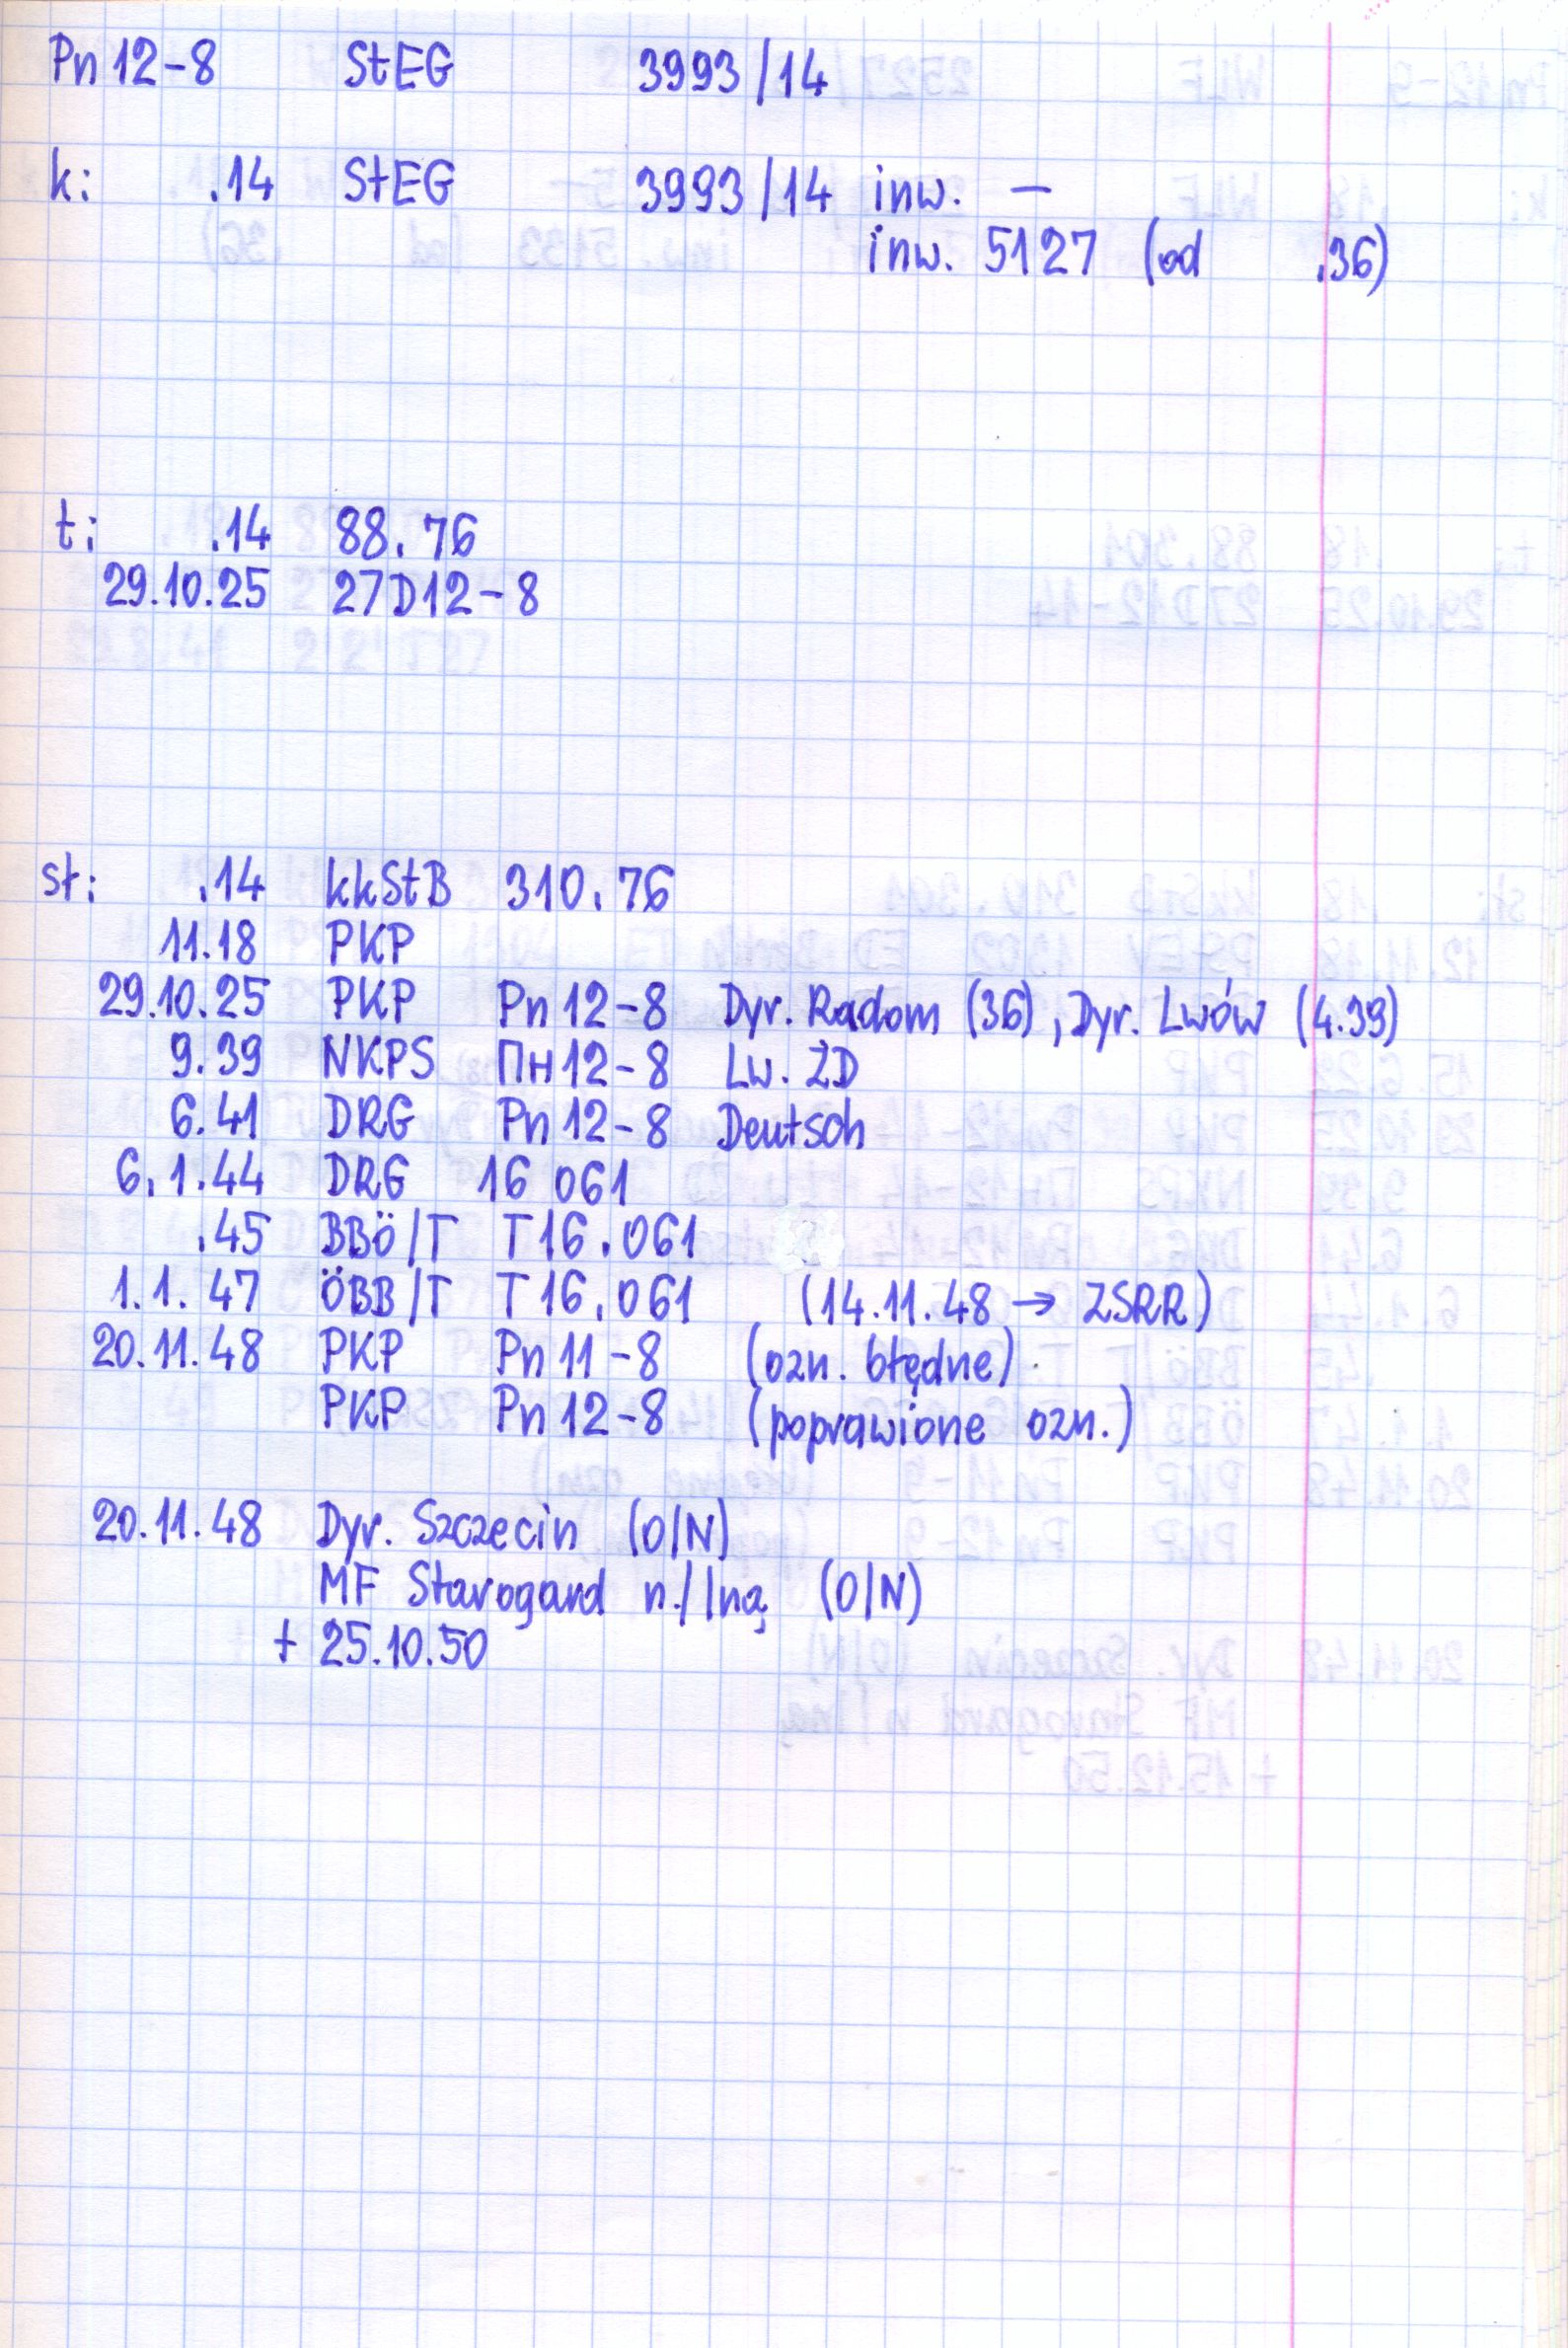 Pn 12-8 StEG 3993/14
k: .14 StEG 3993/14 inw. —
inw. 5127 (od .36)
t: .14 88.76
29.10.25 27D12-8
sł: .14 kkStB 310.76
11.18 PKP
29.10.25 PKP Pn 12-8 Dyr. Radom (36), Dyr. Lwów (4.39)
9.39 NKPS Пн 12-8 Lw. ŻD
6.41 DRG Pn 12-8 Deutsch
6.1.44 DRG 16 061
.45 BBÖ/T T 16.061
1.1.47 ÖBB/T T 16.061 (14.11.48 → ZSRR)
20.11.48 PKP Pn 11-8 (ozn. błędne)
PKP Pn 12-8 (poprawione ozn.)
20.11.48 Dyr. Szczecin (O/N)
MF Starogard n./Iną (O/N)
+ 25.10.50